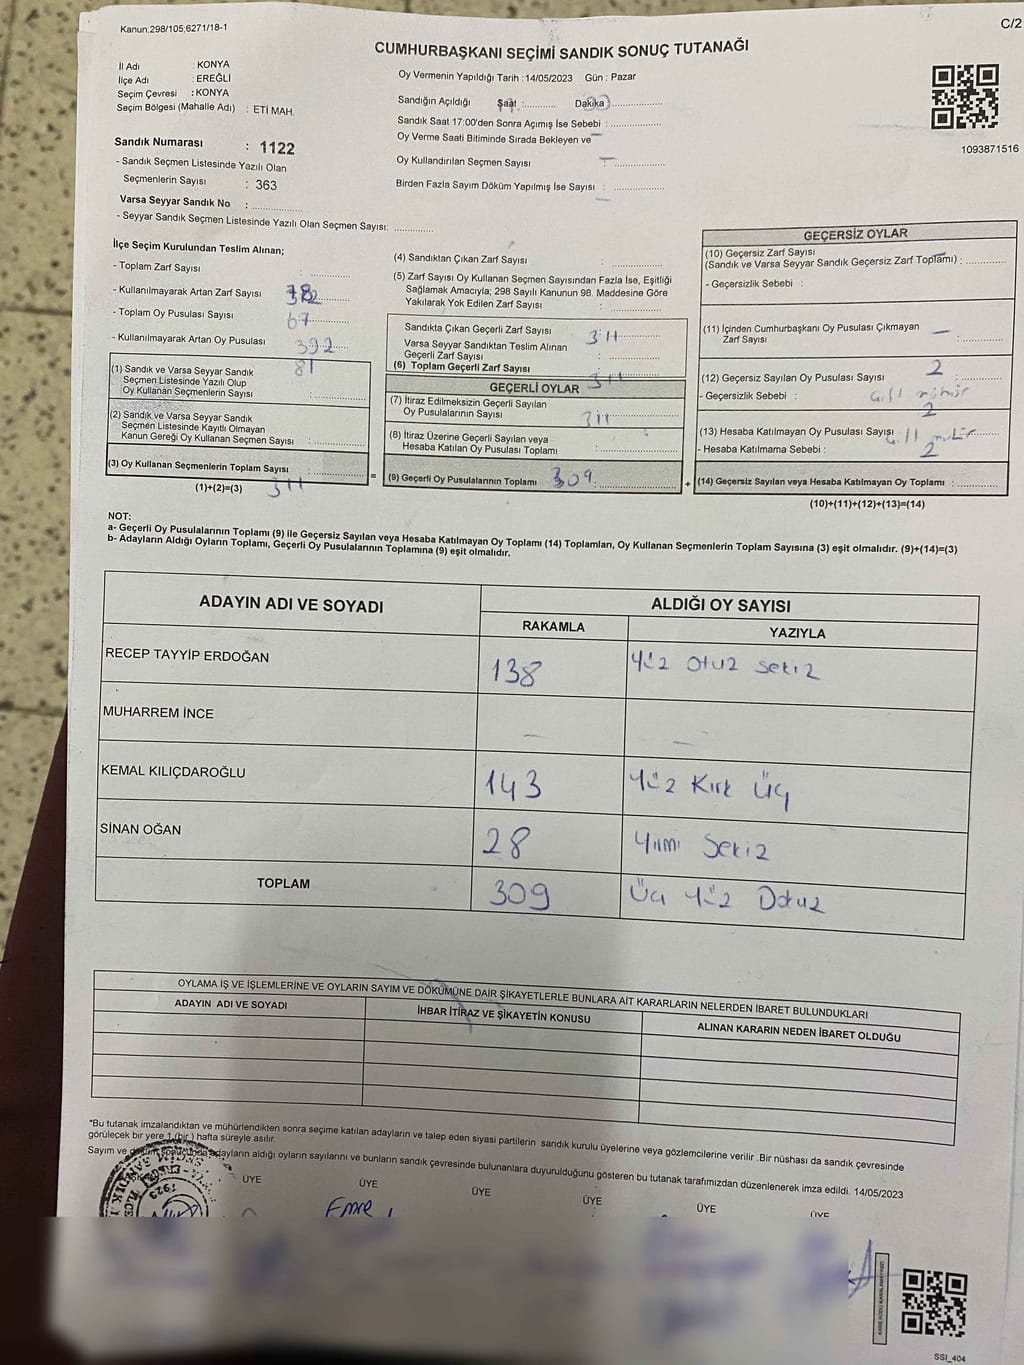 Kanun:298/105;6271/18-1
C/2
CUMHURBAŞKANI SEÇİMİ SANDIK SONUÇ TUTANAĞI
İl Adı : KONYA
İlçe Adı : EREĞLİ
Seçim Çevresi : KONYA
Seçim Bölgesi (Mahalle Adı) : ETİ MAH.
Oy Vermenin Yapıldığı Tarih :14/05/2023 Gün : Pazar
Sandığın Açıldığı Saat :........... Dakika :..............
Sandık Saat 17:00'den Sonra Açımış İse Sebebi : ..............
Oy Verme Saati Bitiminde Sırada Bekleyen ve
Oy Kullandırılan Seçmen Sayısı : ..............
Birden Fazla Sayım Döküm Yapılmış İse Sayısı : ..............
1093871516
Sandık Numarası : 1122
- Sandık Seçmen Listesinde Yazılı Olan
Seçmenlerin Sayısı : 363
Varsa Seyyar Sandık No : ..............
- Seyyar Sandık Seçmen Listesinde Yazılı Olan Seçmen Sayısı: ...........
İlçe Seçim Kurulundan Teslim Alınan;
- Toplam Zarf Sayısı : ..............
- Kullanılmayarak Artan Zarf Sayısı
- Toplam Oy Pusulası Sayısı 67
- Kullanılmayarak Artan Oy Pusulası 392
81
(1) Sandık ve Varsa Seyyar Sandık
Seçmen Listesinde Yazılı Olup
Oy Kullanan Seçmenlerin Sayısı : ..............
(2) Sandık ve Varsa Seyyar Sandık
Seçmen Listesinde Kayıtlı Olmayan
Kanun Gereği Oy Kullanan Seçmen Sayısı : ..............
(3) Oy Kullanan Seçmenlerin Toplam Sayısı : .............. =
(1)+(2)=(3) 311
(4) Sandıktan Çıkan Zarf Sayısı : ..............
(5) Zarf Sayısı Oy Kullanan Seçmen Sayısından Fazla İse, Eşitliği
Sağlamak Amacıyla; 298 Sayılı Kanunun 98. Maddesine Göre
Yakılarak Yok Edilen Zarf Sayısı : ..............
Sandıkta Çıkan Geçerli Zarf Sayısı : 311
Varsa Seyyar Sandıktan Teslim Alınan
Geçerli Zarf Sayısı : ..............
(6) Toplam Geçerli Zarf Sayısı : 311
GEÇERLİ OYLAR
(7) İtiraz Edilmeksizin Geçerli Sayılan
Oy Pusulalarının Sayısı : 311
(8) İtiraz Üzerine Geçerli Sayılan veya
Hesaba Katılan Oy Pusulası Toplamı : ..............
(9) Geçerli Oy Pusulalarının Toplamı : 309 +
GEÇERSİZ OYLAR
(10) Geçersiz Zarf Sayısı
(Sandık ve Varsa Seyyar Sandık Geçersiz Zarf Toplamı) : ...........
- Geçersizlik Sebebi :
(11) İçinden Cumhurbaşkanı Oy Pusulası Çıkmayan
Zarf Sayısı : ...........
(12) Geçersiz Sayılan Oy Pusulası Sayısı : 2
- Geçersizlik Sebebi :
2
(13) Hesaba Katılmayan Oy Pusulası Sayısı
- Hesaba Katılmama Sebebi : 2
(14) Geçersiz Sayılan veya Hesaba Katılmayan Oy Toplamı : ...........
(10)+(11)+(12)+(13)=(14)
NOT:
a- Geçerli Oy Pusulalarının Toplamı (9) ile Geçersiz Sayılan veya Hesaba Katılmayan Oy Toplamı (14) Toplamları, Oy Kullanan Seçmenlerin Toplam Sayısına (3) eşit olmalıdır. (9)+(14)=(3)
b- Adayların Aldığı Oyların Toplamı, Geçerli Oy Pusulalarının Toplamına (9) eşit olmalıdır.
ADAYIN ADI VE SOYADI ALDIĞI OY SAYISI
RAKAMLA YAZIYLA
RECEP TAYYİP ERDOĞAN 138 Yüz Otuz Sekiz
MUHARREM İNCE — —
KEMAL KILIÇDAROĞLU 143 Yüz Kırk Üç
SİNAN OĞAN 28 Yirmi Sekiz
TOPLAM 309 Üç Yüz Dokuz
OYLAMA İŞ VE İŞLEMLERİNE VE OYLARIN SAYIM VE DÖKÜMÜNE DAİR ŞİKAYETLERLE BUNLARA AİT KARARLARIN NELERDEN İBARET BULUNDUKLARI
ADAYIN ADI VE SOYADI İHBAR İTİRAZ VE ŞİKAYETİN KONUSU ALINAN KARARIN NEDEN İBARET OLDUĞU
*Bu tutanak imzalandıktan ve mühürlendikten sonra seçime katılan adayların ve talep eden siyasi partilerin sandık kurulu üyelerine veya gözlemcilerine verilir .Bir nüshası da sandık çevresinde
görülecek bir yere 1 (bir ) hafta süreyle asılır.
Sayım ve döküm sonucunda adayların aldığı oyların sayılarını ve bunların sandık çevresinde bulunanlara duyurulduğunu gösteren bu tutanak tarafımızdan düzenlenerek imza edildi. 14/05/2023
ÜYE ÜYE ÜYE ÜYE ÜYE ÜYE
Emre
SSI_404